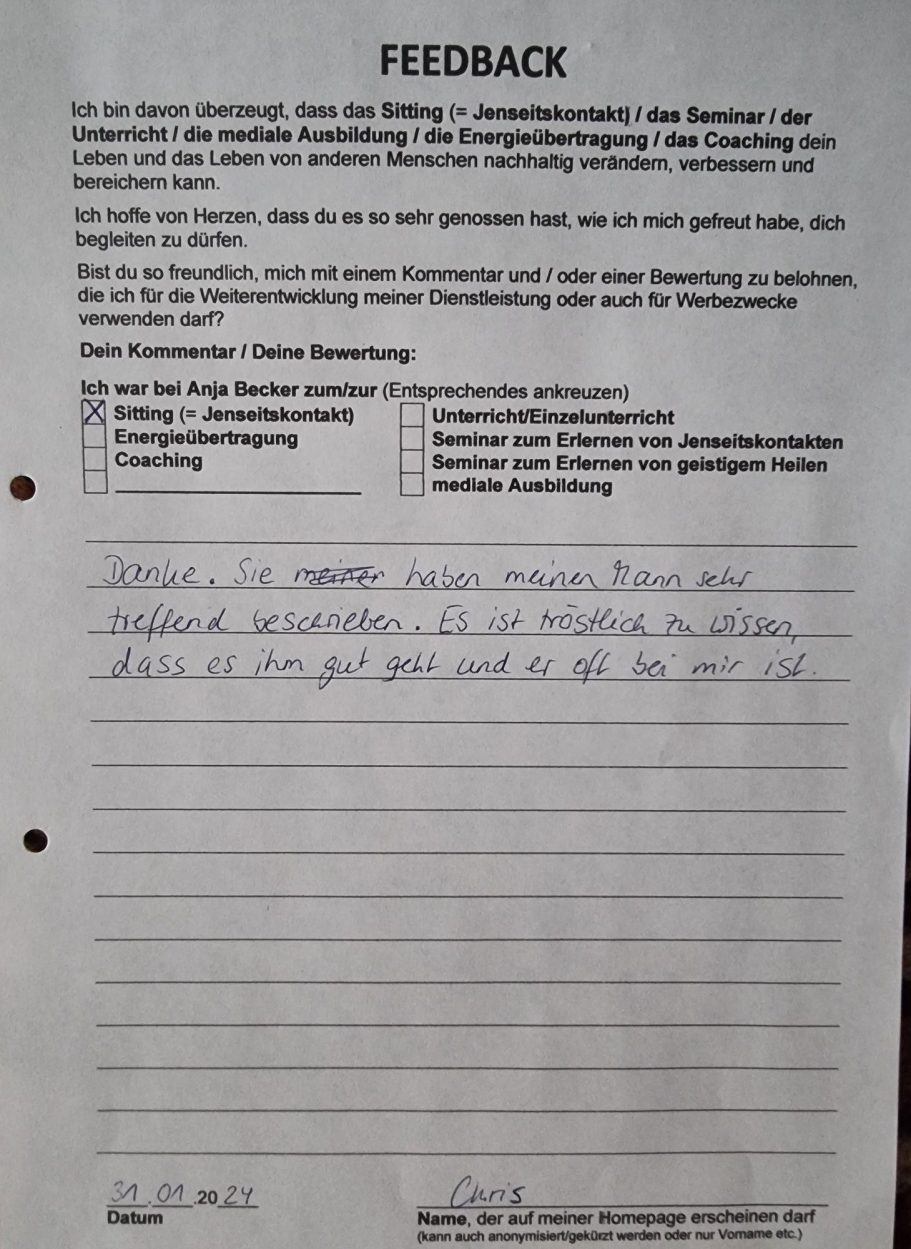 FEEDBACK
Ich bin davon überzeugt, dass das Sitting (= Jenseitskontakt) / das Seminar / der
Unterricht / die mediale Ausbildung / die Energieübertragung / das Coaching dein
Leben und das Leben von anderen Menschen nachhaltig verändern, verbessern und
bereichern kann.
Ich hoffe von Herzen, dass du es so sehr genossen hast, wie ich mich gefreut habe, dich
begleiten zu dürfen.
Bist du so freundlich, mich mit einem Kommentar und / oder einer Bewertung zu belohnen,
die ich für die Weiterentwicklung meiner Dienstleistung oder auch für Werbezwecke
verwenden darf?
Dein Kommentar / Deine Bewertung:
Ich war bei Anja Becker zum/zur (Entsprechendes ankreuzen)
X Sitting (= Jenseitskontakt)
Energieübertragung
Coaching
Unterricht/Einzelunterricht
Seminar zum Erlernen von Jenseitskontakten
Seminar zum Erlernen von geistigem Heilen
mediale Ausbildung
Danke. Sie haben meinen Mann sehr
treffend beschrieben. Es ist tröstlich zu wissen,
dass es ihm gut geht und er oft bei mir ist.
31.01.2024
Datum
Chris
Name, der auf meiner Homepage erscheinen darf
(kann auch anonymisiert/gekürzt werden oder nur Vorname etc.)